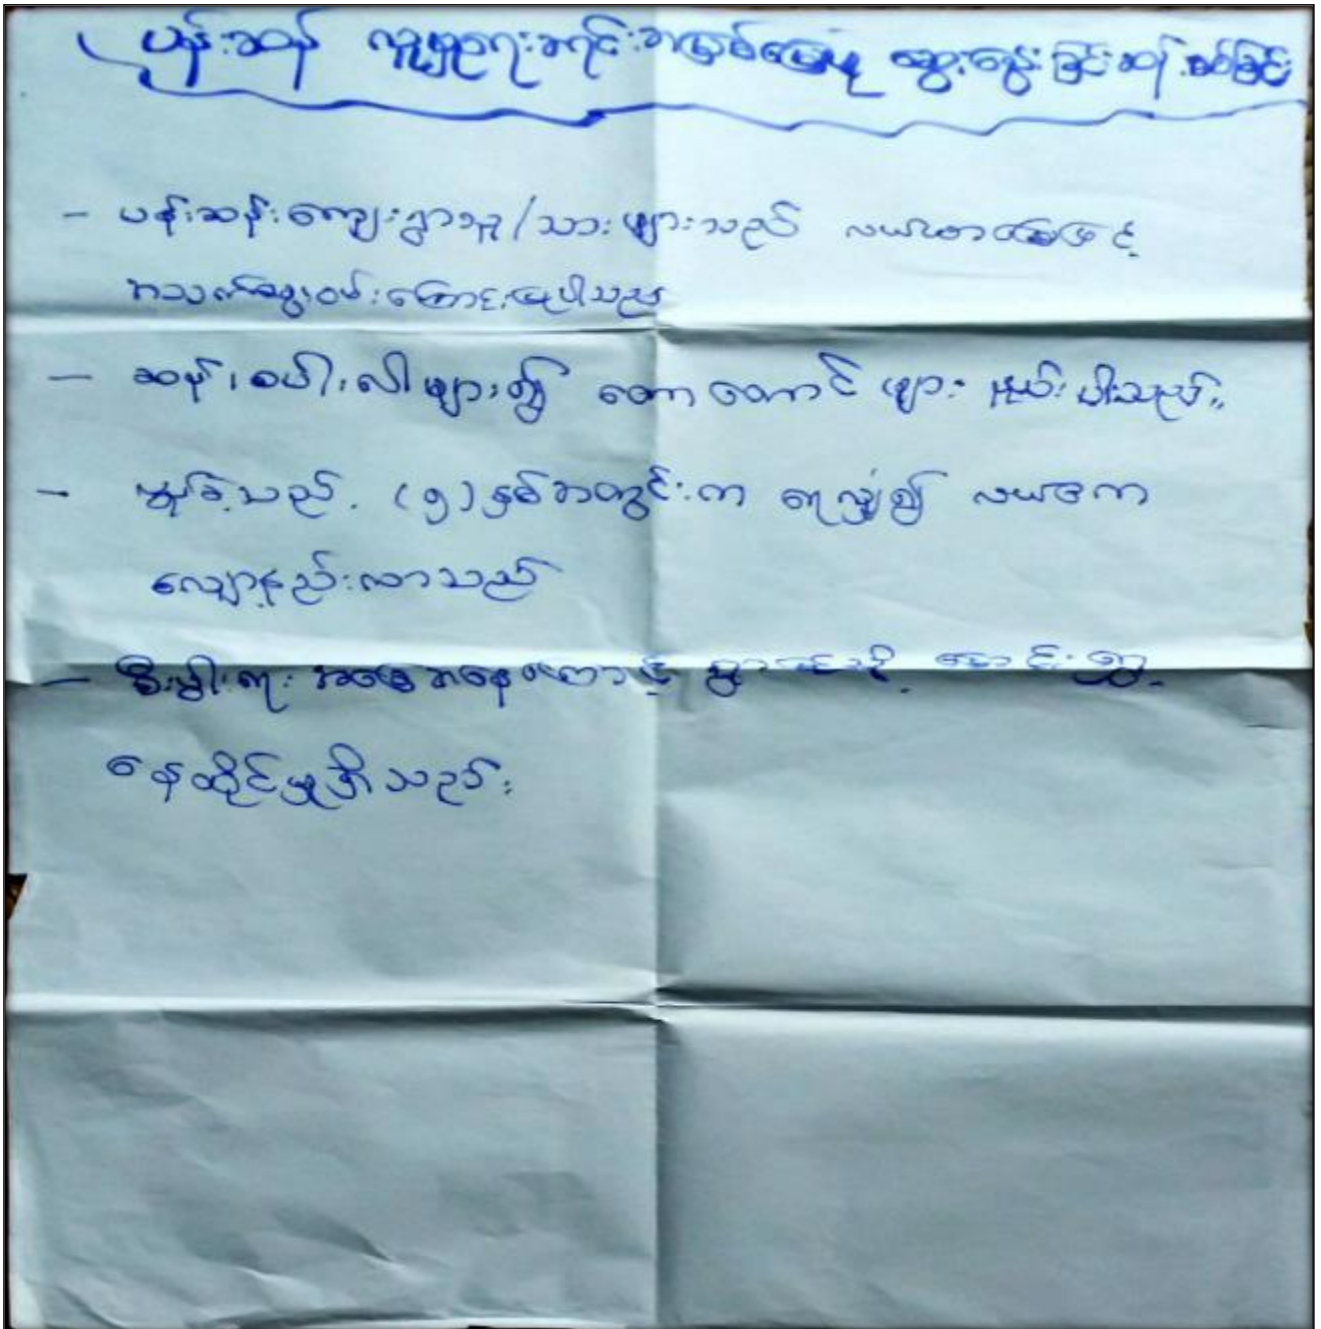 ပန်းဆန် လူမှုရေးအရင်းအမြစ်မြေပုံ ဆွေးနွေးခြင်းဆန်းစစ်ခြင်း
- ပန်းဆန်းကျေးရွာသူ/သားများသည် လယ်ယာမြေဖြင့်
အသက်မွေးဝမ်းကြောင်းပြုပါသည်
- ဆန်၊ စပါးလီများ၍ တောတောင် များ နည်းပါးသည်။
- လွန်ခဲ့သည့် (၅)နှစ်အတွင်းက ရေလျှံ၍ လယ်ဧက
လျော့နည်းလာသည်
- စီးပွါးရေး အခြေအနေကြောင့် ရွာ ပြောင်းရွှေ့
နေထိုင်မှုရှိသည်။